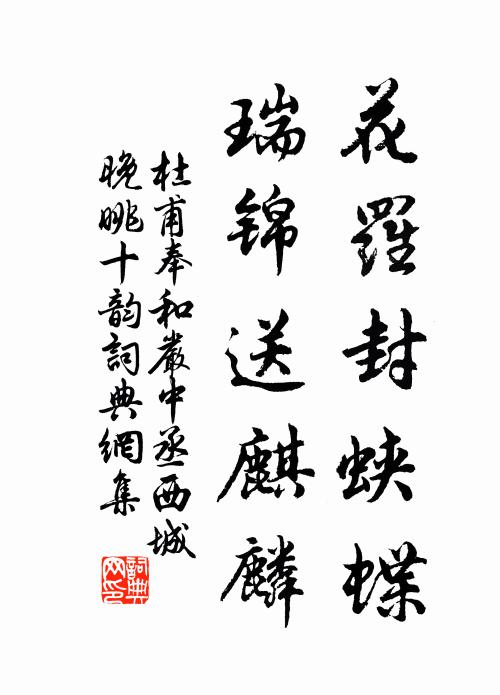 花羅封蛺蝶
瑞錦送麒麟
杜甫奉和嚴中丞西城
晚眺十韵詞典網集
詞典网印